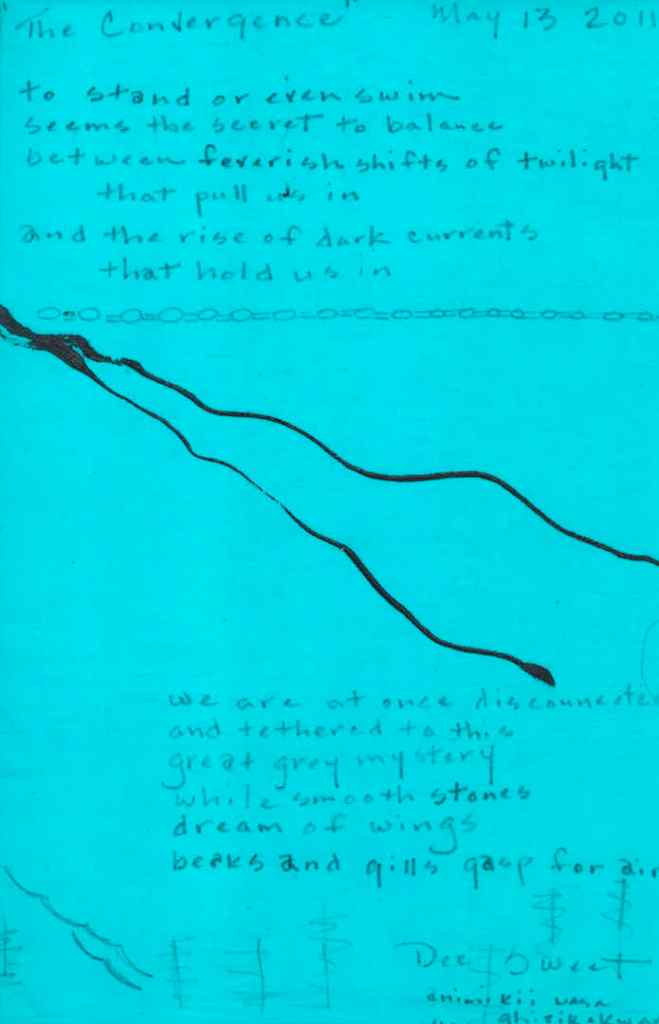 "The Convergence" May 13 2011
to stand or even swim
seems the secret to balance
between feverish shifts of twilight
that pull us in
and the rise of dark currents
that hold us in
we are at once disconnected
and tethered to this
great grey mystery
while smooth stones
dream of wings
beaks and gills gasp for air
Dee Sweet
animikii waaa